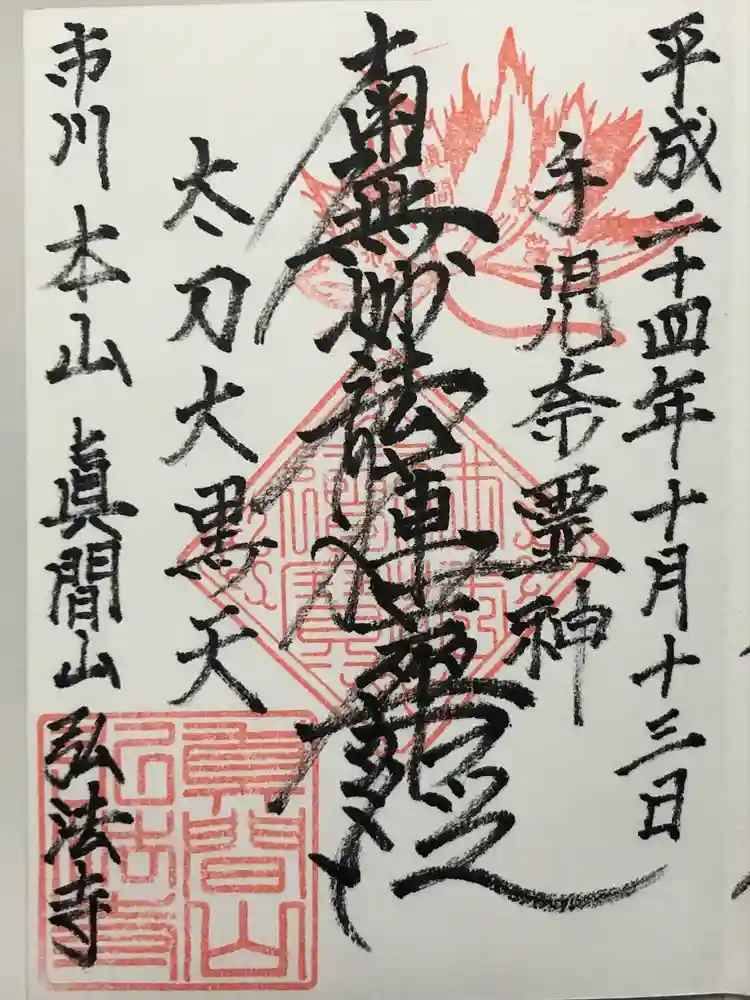 平成二十四年十月十三日
手児奈霊神
南無妙法蓮華經
太刀大黒天
市川 本山 真間山 弘法寺
真間山
弘法寺